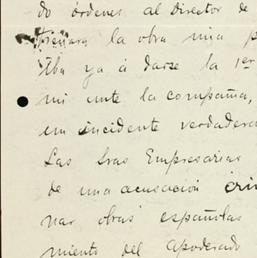 do órdenes al Director de
trenara la obra una p
Iba ya á darse la 1er
mi ante la compañia,
un incidente verdadera
Las Sras Empresarias
de una acusación crim
nar obras españolas
miento del apoderado